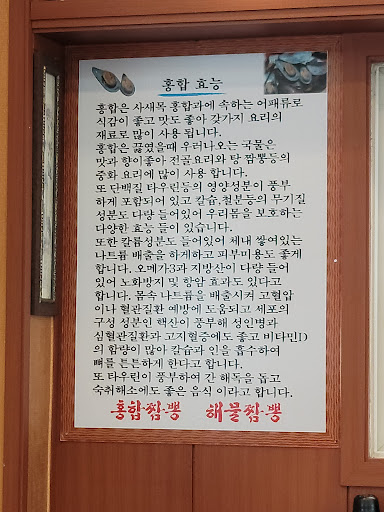 홍합 효능
홍합은 사새목 홍합과에 속하는 어패류로
식감이 좋고 맛도 좋아 갖가지 요리의
재료로 많이 사용 됩니다.
홍합은 끓였을때 우러나오는 국물은
맛과 향이좋아 전골요리와 탕 짬뽕등의
중화 요리에 많이 사용 합니다.
또 단백질 타우린등의 영양성분이 풍부
하게 포함되어 있고 칼슘,철분등의 무기질
성분도 다량 들어있어 우리몸을 보호하는
다양한 효능 들이 있습니다.
또한 칼륨성분도 들어있어 체내 쌓여있는
나트륨 배출을 하게하고 피부미용도 좋게
합니다. 오메가3과 지방산이 다량 들어
있어 노화방지 및 항암 효과도 있다고
합니다. 몸속 나트륨을 배출시켜 고혈압
이나 혈관질환 예방에 도움되고 세포의
구성 성분인 핵산이 풍부해 성인병과
심혈관질환과 고지혈증에도 좋고 비타민D
의 함량이 많아 칼슘과 인을 흡수하여
뼈를 튼튼하게 한다고 합니다.
또 타우린이 풍부하여 간 해독을 돕고
숙취해소에도 좋은 음식 이라고 합니다.
홍합짬·뽕 해물짬·뽕